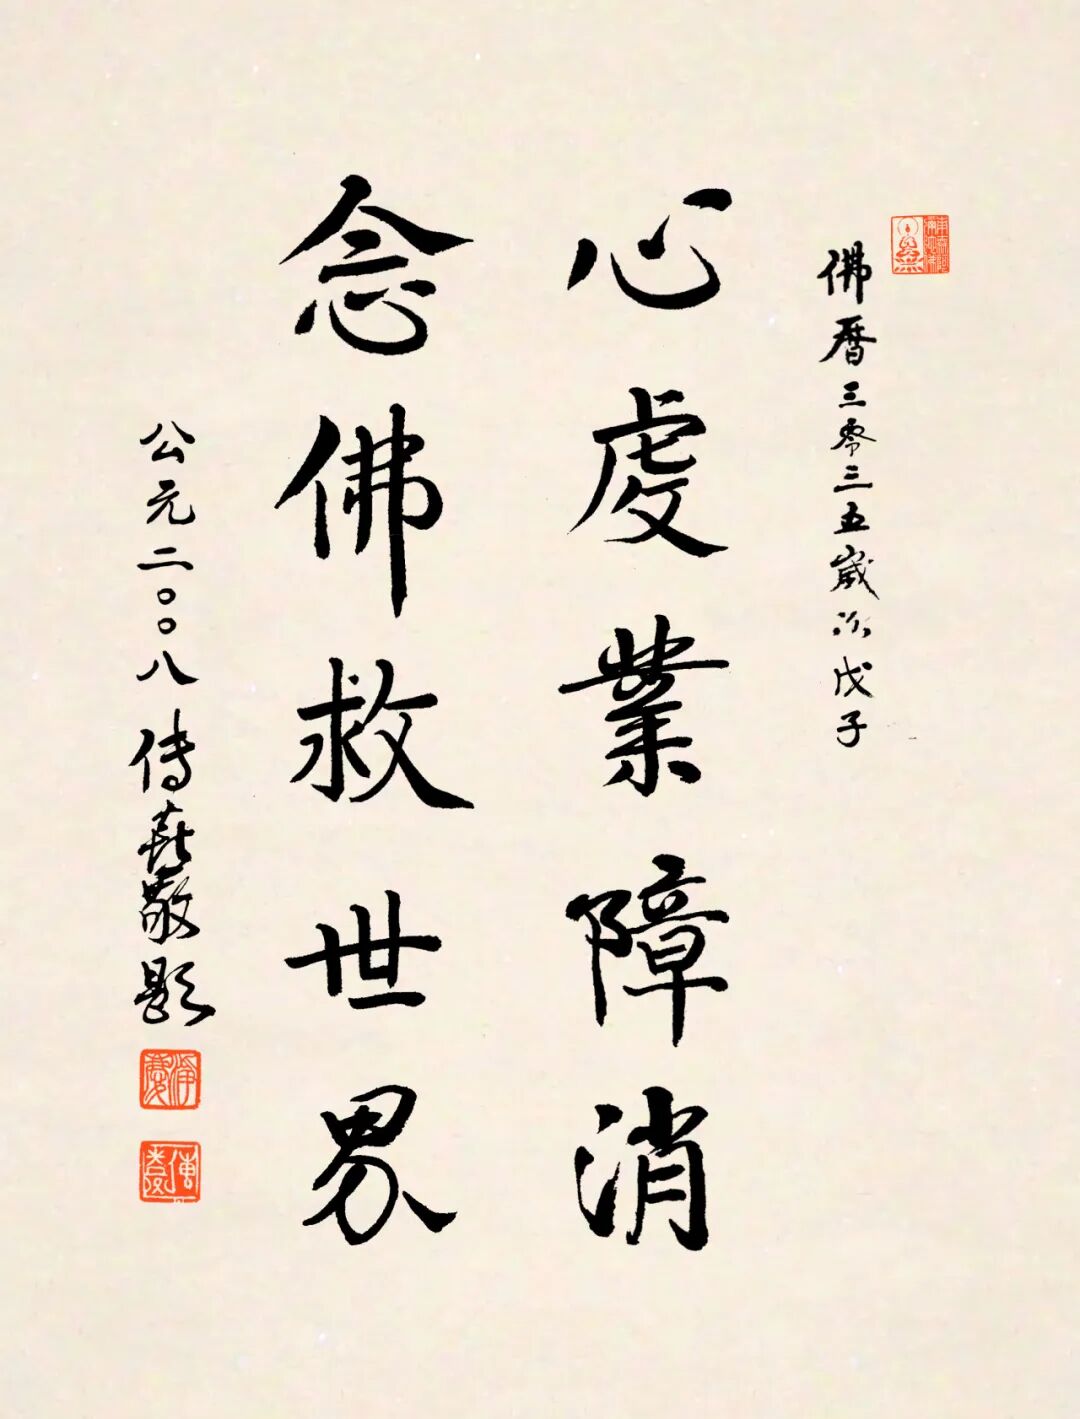 佛曆三零三五歲次戊子
心虔業障消
念佛救世界
公元二〇〇八傳喜敬題